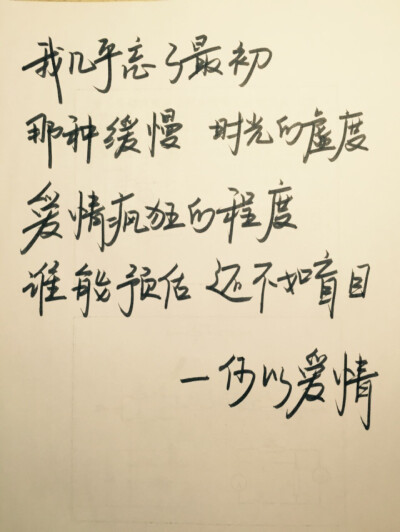 我几乎忘了最初
那种缓慢 时光的虚度
爱情疯狂的程度
谁能预估 还不如盲目
—何以爱情